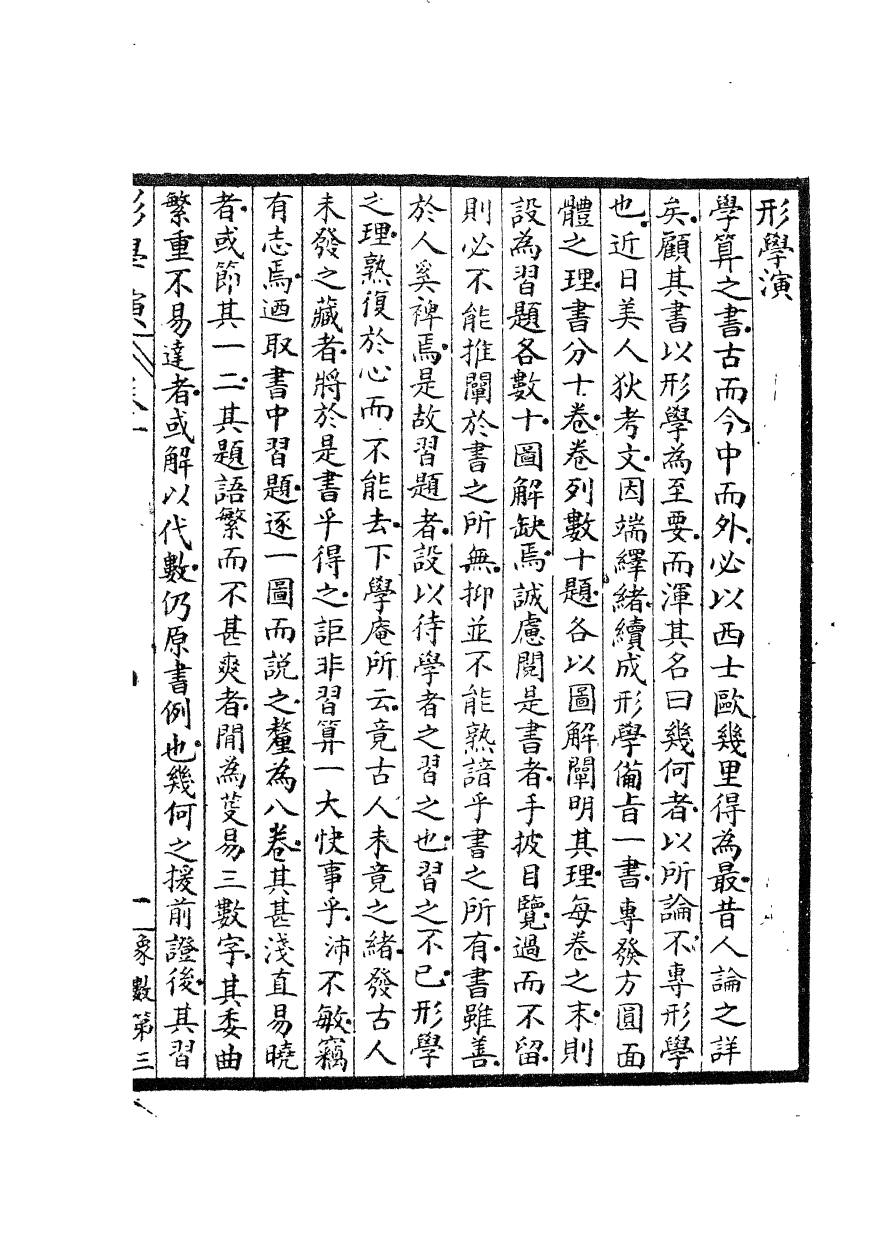 形學演
學算之書古而今中而外必以西士歐幾里得為最昔人論之詳
矣顧其書以形學為至要而渾其名曰幾何者以所論不專形學
也近日美人狄考文因端繹緒續成形學備旨一書專發方圓面
體之理書分十卷卷列數十題各以圖解闡明其理每卷之末則
設為習題各數十圖解缺焉誠慮閱是書者手披目覽過而不留
則必不能推闡於書之所無抑並不能熟諳乎書之所有書雖善
於人奚裨焉是故習題者設以待學者之習之也習之不已形學
之理熟復於心而不能去下學庵所云竟古人未竟之緒發古人
未發之藏者將於是書乎得之詎非習算一大快事乎沛不敏竊
有志焉迺取書中習題逐一圖而說之釐為八卷其甚淺直易曉
者或節其一二其題語繁而不甚爽者閒為芟易三數字其委曲
繁重不易達者或解以代數仍原書例也幾何之援前證後其習
象數第三